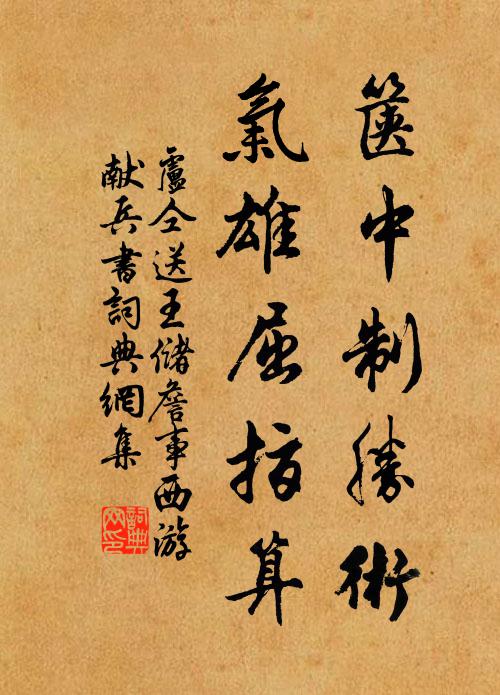 篋中制勝術
氣雄屈指算
盧仝送王儲詹事西游
献兵書詞典網集
詞典網印